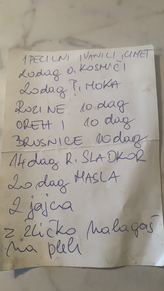 1 PECILNI 1 VANILI 1 CIMET
20 dag O. KOSMIČI
20 dag P. MOKA
ROZINE 10 dag
OREHI 10 dag
BRUSNICE 10 dag
14 dag R. SLADKOR
20 dag MASLA
2 jajca
z žličko nalagaš
na pleh